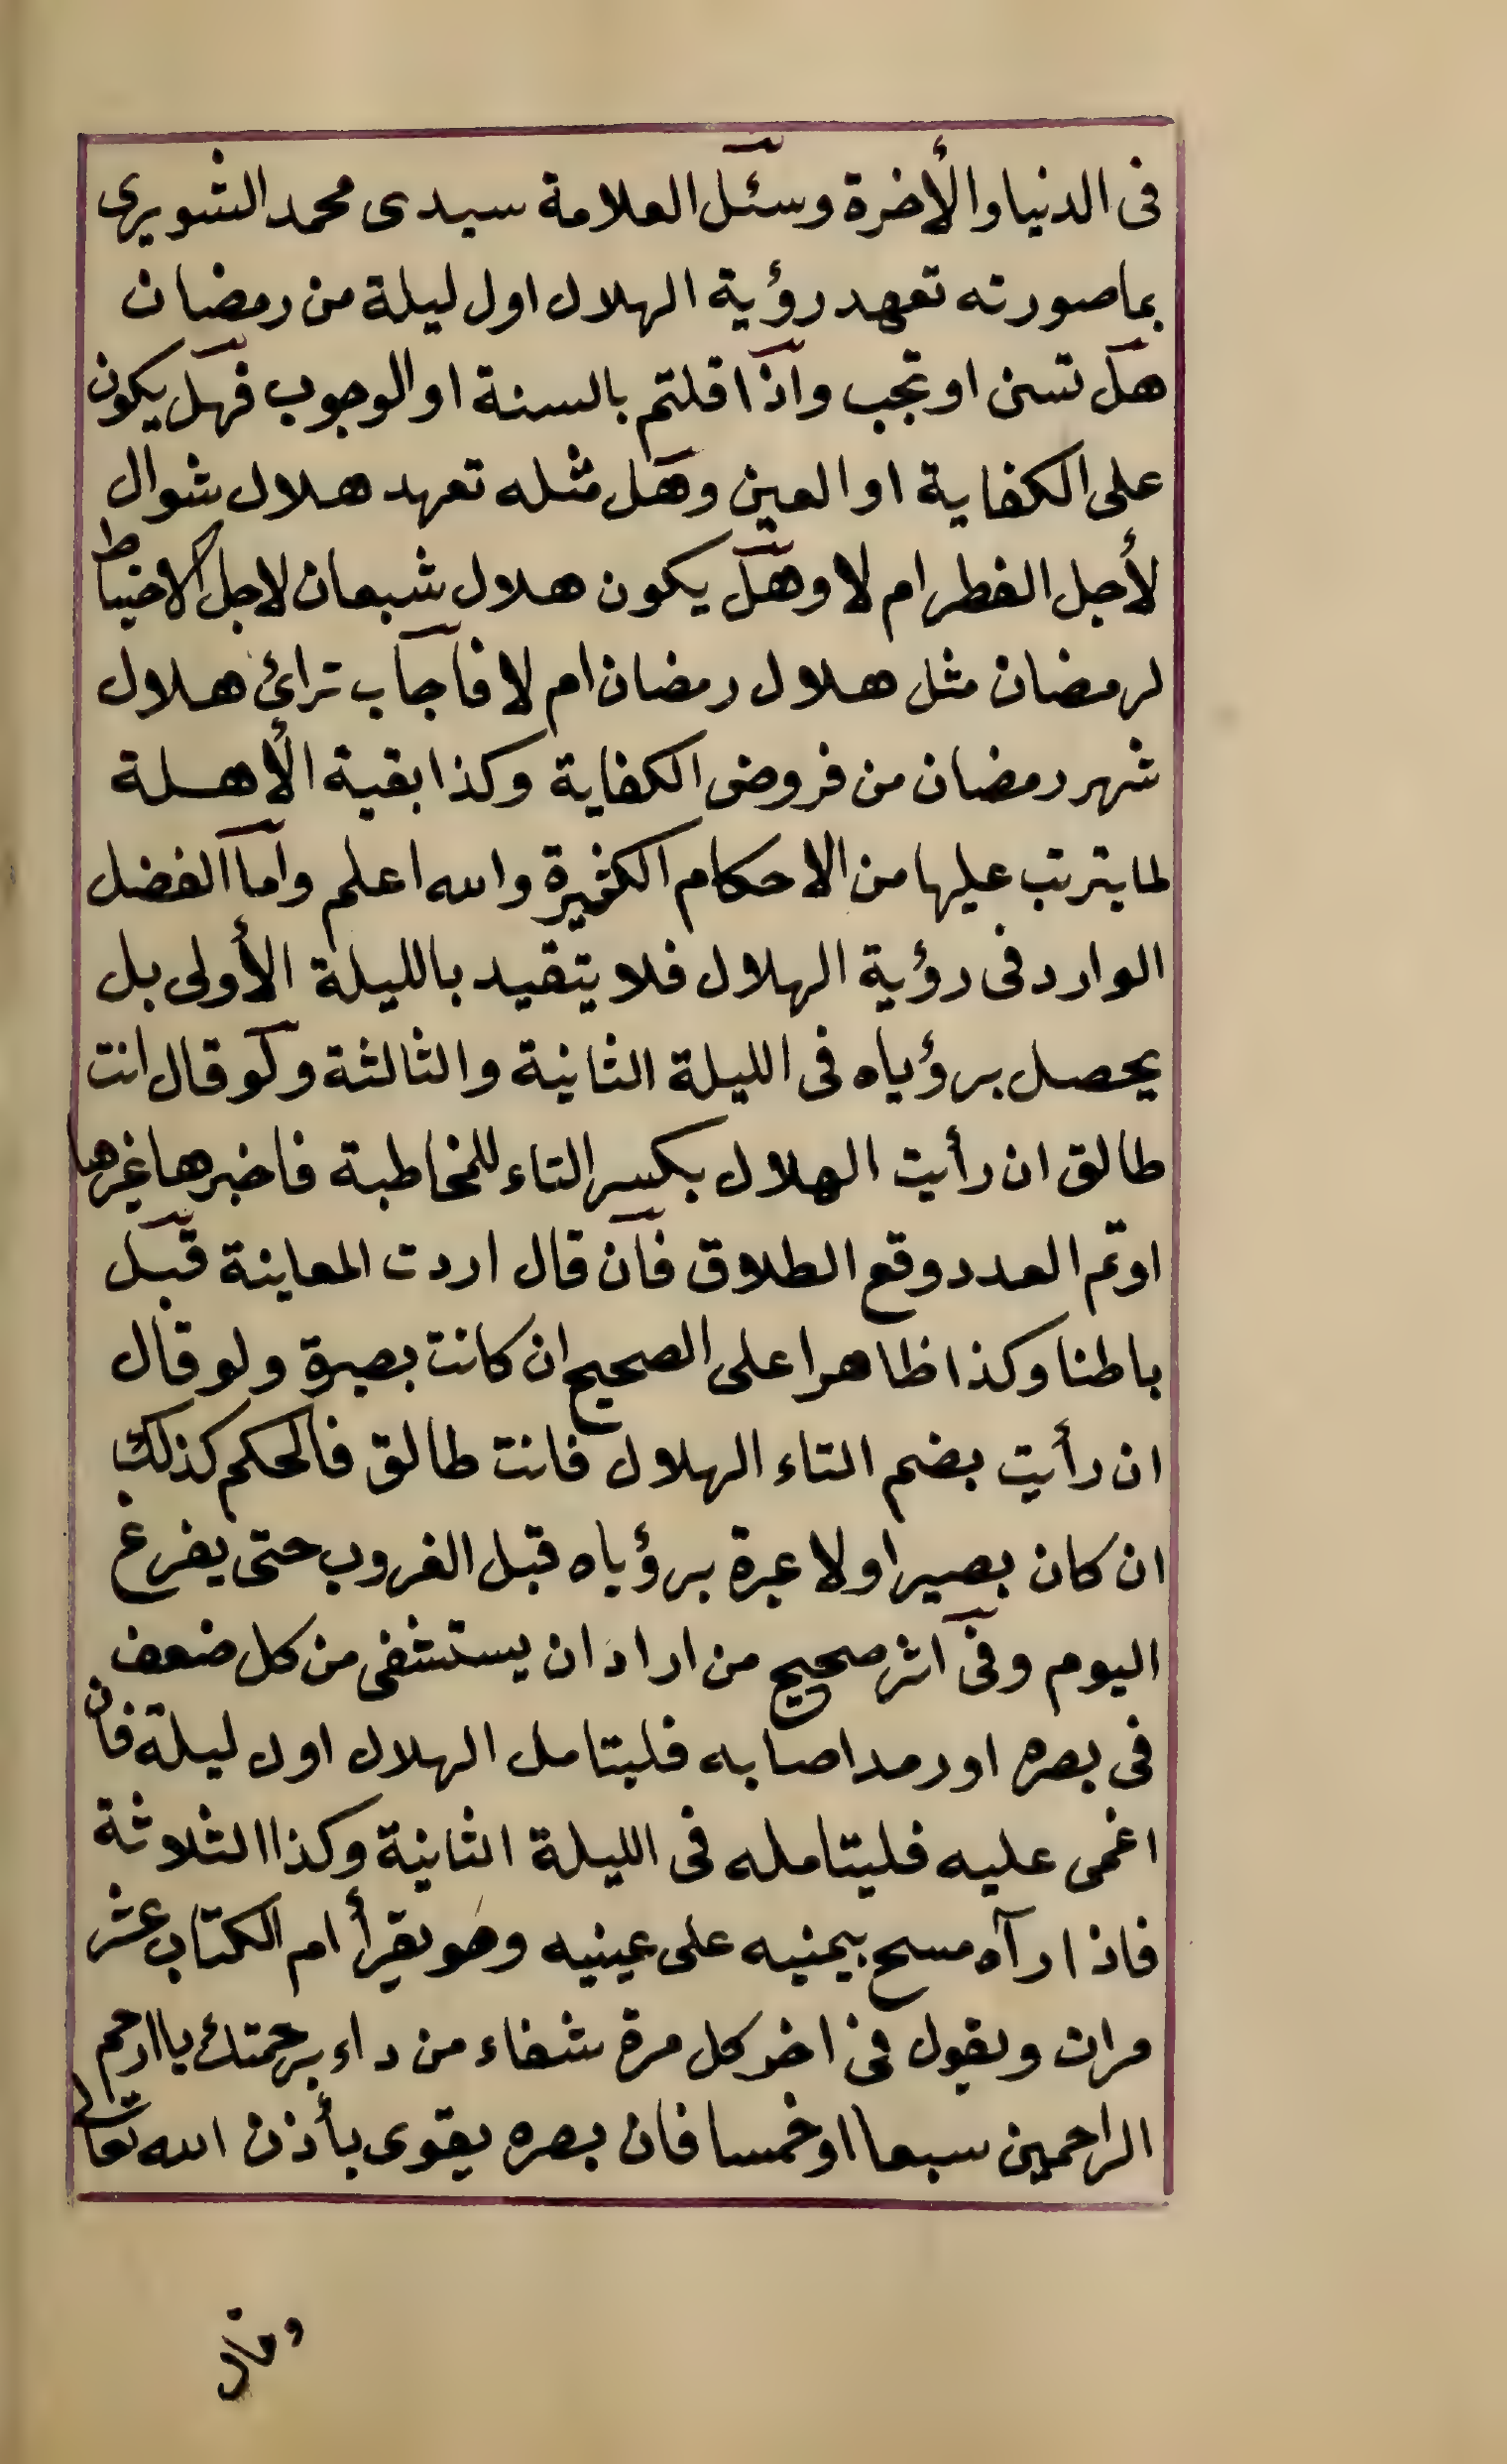 فى الدنيا والأخرة وسئل العلامة سيدى محمد الشويرى
بما صورته تعهد رؤية الهلال اول ليلة من رمضان
هل تسن او تجب واذا قلتم بالسنة او الوجوب فهل يكون
على الكفاية او العين وهل مثله تعهد هلال شوال
لأجل الفطر ام لا وهل يكون هلال شبعان لاجل الاختياط
لرمضان مثل هلال رمضان ام لا فاجاب ترائ هلال
شهر رمضان من فروض الكفاية وكذا بقية الأهلة
لما يترتب عليها من الاحكام الكثيرة والله اعلم واما الفضل
الوارد فى رؤية الهلال فلا يتقيد بالليلة الأولى بل
يحصل برؤياه فى الليلة الثانية والثالثة ولو قال انت
طالق ان رأيت الهلال بكسر التاء للمخاطبة فاخبرها غيرها
او تم العدد وقع الطلاق فان قال اردت المعاينة قبل
باطنا وكذا ظاهرا على الصحيح ان كانت بصيرة ولو قال
ان رأيت بضم التاء الهلال فانت طالق فالحكم كذلك
ان كان بصيرا ولا عبرة برؤياه قبل الغروب حتى يفرغ
اليوم وفى اثر صحيح من اراد ان يستشفى من كل ضعف
فى بصره او رمد اصابه فليتامل الهلال اول ليلة فان
اغمى عليه فليتامله فى الليلة الثانية وكذا الثلاثة
فاذا رآه مسح بيمنيه على عينيه وهو يقرأ ام الكتاب عشر
مرات ويقول فى اخر كل مرة شفاء من داء برحمتك يا ارحم
الراحمين سبعا او خمسا فان بصره يقوى بأذن الله تعالى
وقال